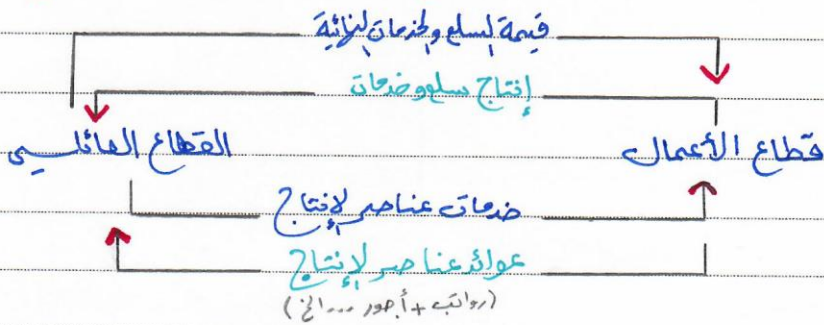 قيمة السلع والخدمات النهائية
إنتاج سلع وخدمات
قطاع الأعمال القطاع العائلي
خدمات عناصر الإنتاج
عوائد عناصر الإنتاج
(رواتب + أجور ... الخ)